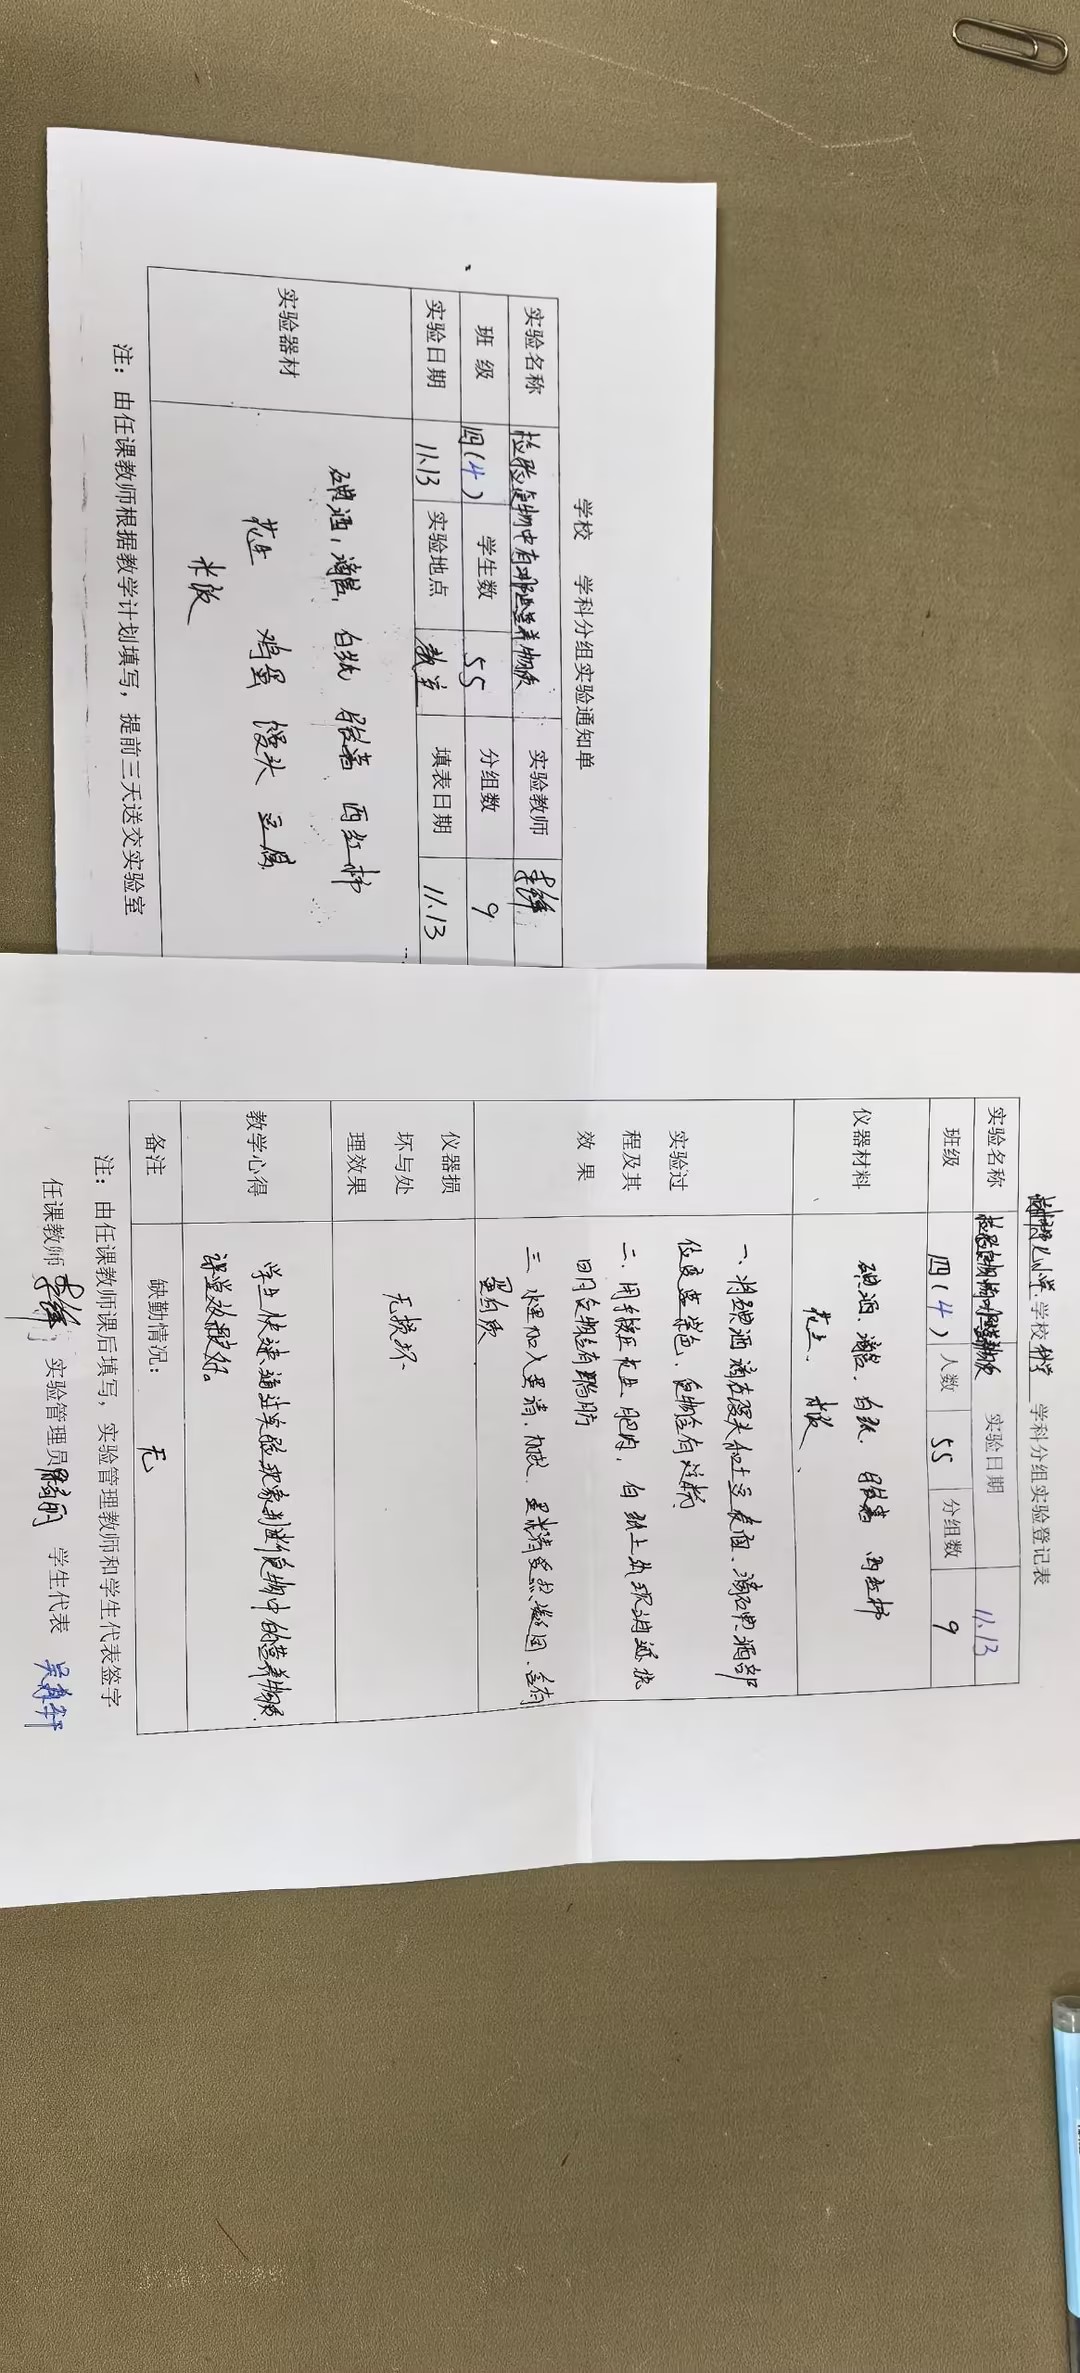 学校 学科分组实验通知单
实验名称 检验食物中有哪些营养物质 实验教师
班 级 四(4) 学生数 55 分组数 9
实验日期 11.13 实验地点 教室 填表日期 11.13
实验器材
碘酒, 滴管, 白纸 肥肉 西红柿
花生 鸡蛋 馒头 豆腐
米饭
注：由任课教师根据教学计划填写，提前三天送交实验室
小学 学校 科学 学科分组实验登记表
实验名称 检验食物中有哪些营养物质 实验日期 11.13
班级 四(4) 人数 55 分组数 9
仪器材料
碘酒、滴管、白纸、 西红柿
花生、米饭、
实验过程及其效果
一、将碘酒滴在馒头和土豆表面、滴碘酒部
位变蓝紫色、食物含有淀粉
二、用手挤压花生、肥肉，白纸上出现油迹 说
明食物含有脂肪
三、水里加入蛋清、加热、蛋清受热凝固、含有
蛋白质
仪器损坏与处理效果
无损坏
教学心得
学生快速通过实验现象判断食物中的营养物质.
课堂效果好。
备注 缺勤情况： 无
注：由任课教师课后填写，实验管理教师和学生代表签字
任课教师 实验管理员 学生代表